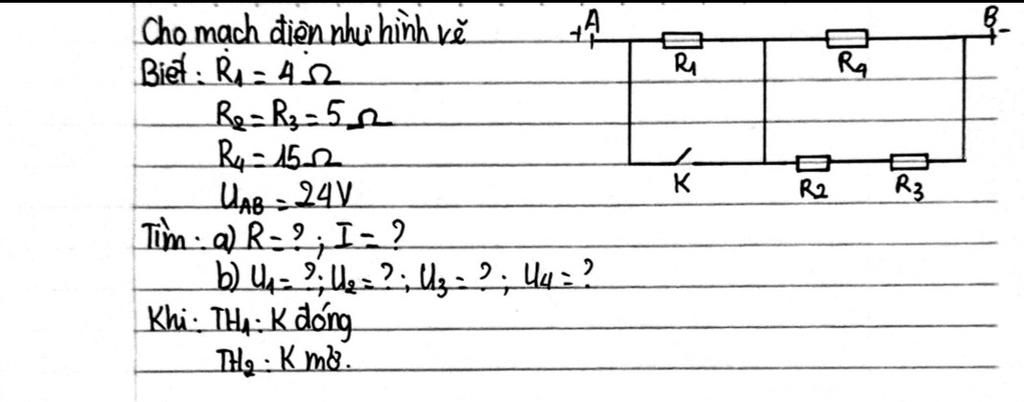 Cho mạch điện như hình vẽ
Biết: R₁ = 4 Ω
R₂ = R₃ = 5 Ω
R₄ = 15 Ω
U_AB = 24V
Tìm: a) R = ? ; I = ?
b) U₁ = ?; U₂ = ?; U₃ = ?; U₄ = ?
Khi: TH₁: K đóng
TH₂: K mở.
+ A
B -
R₁
R₄
K
R₂
R₃